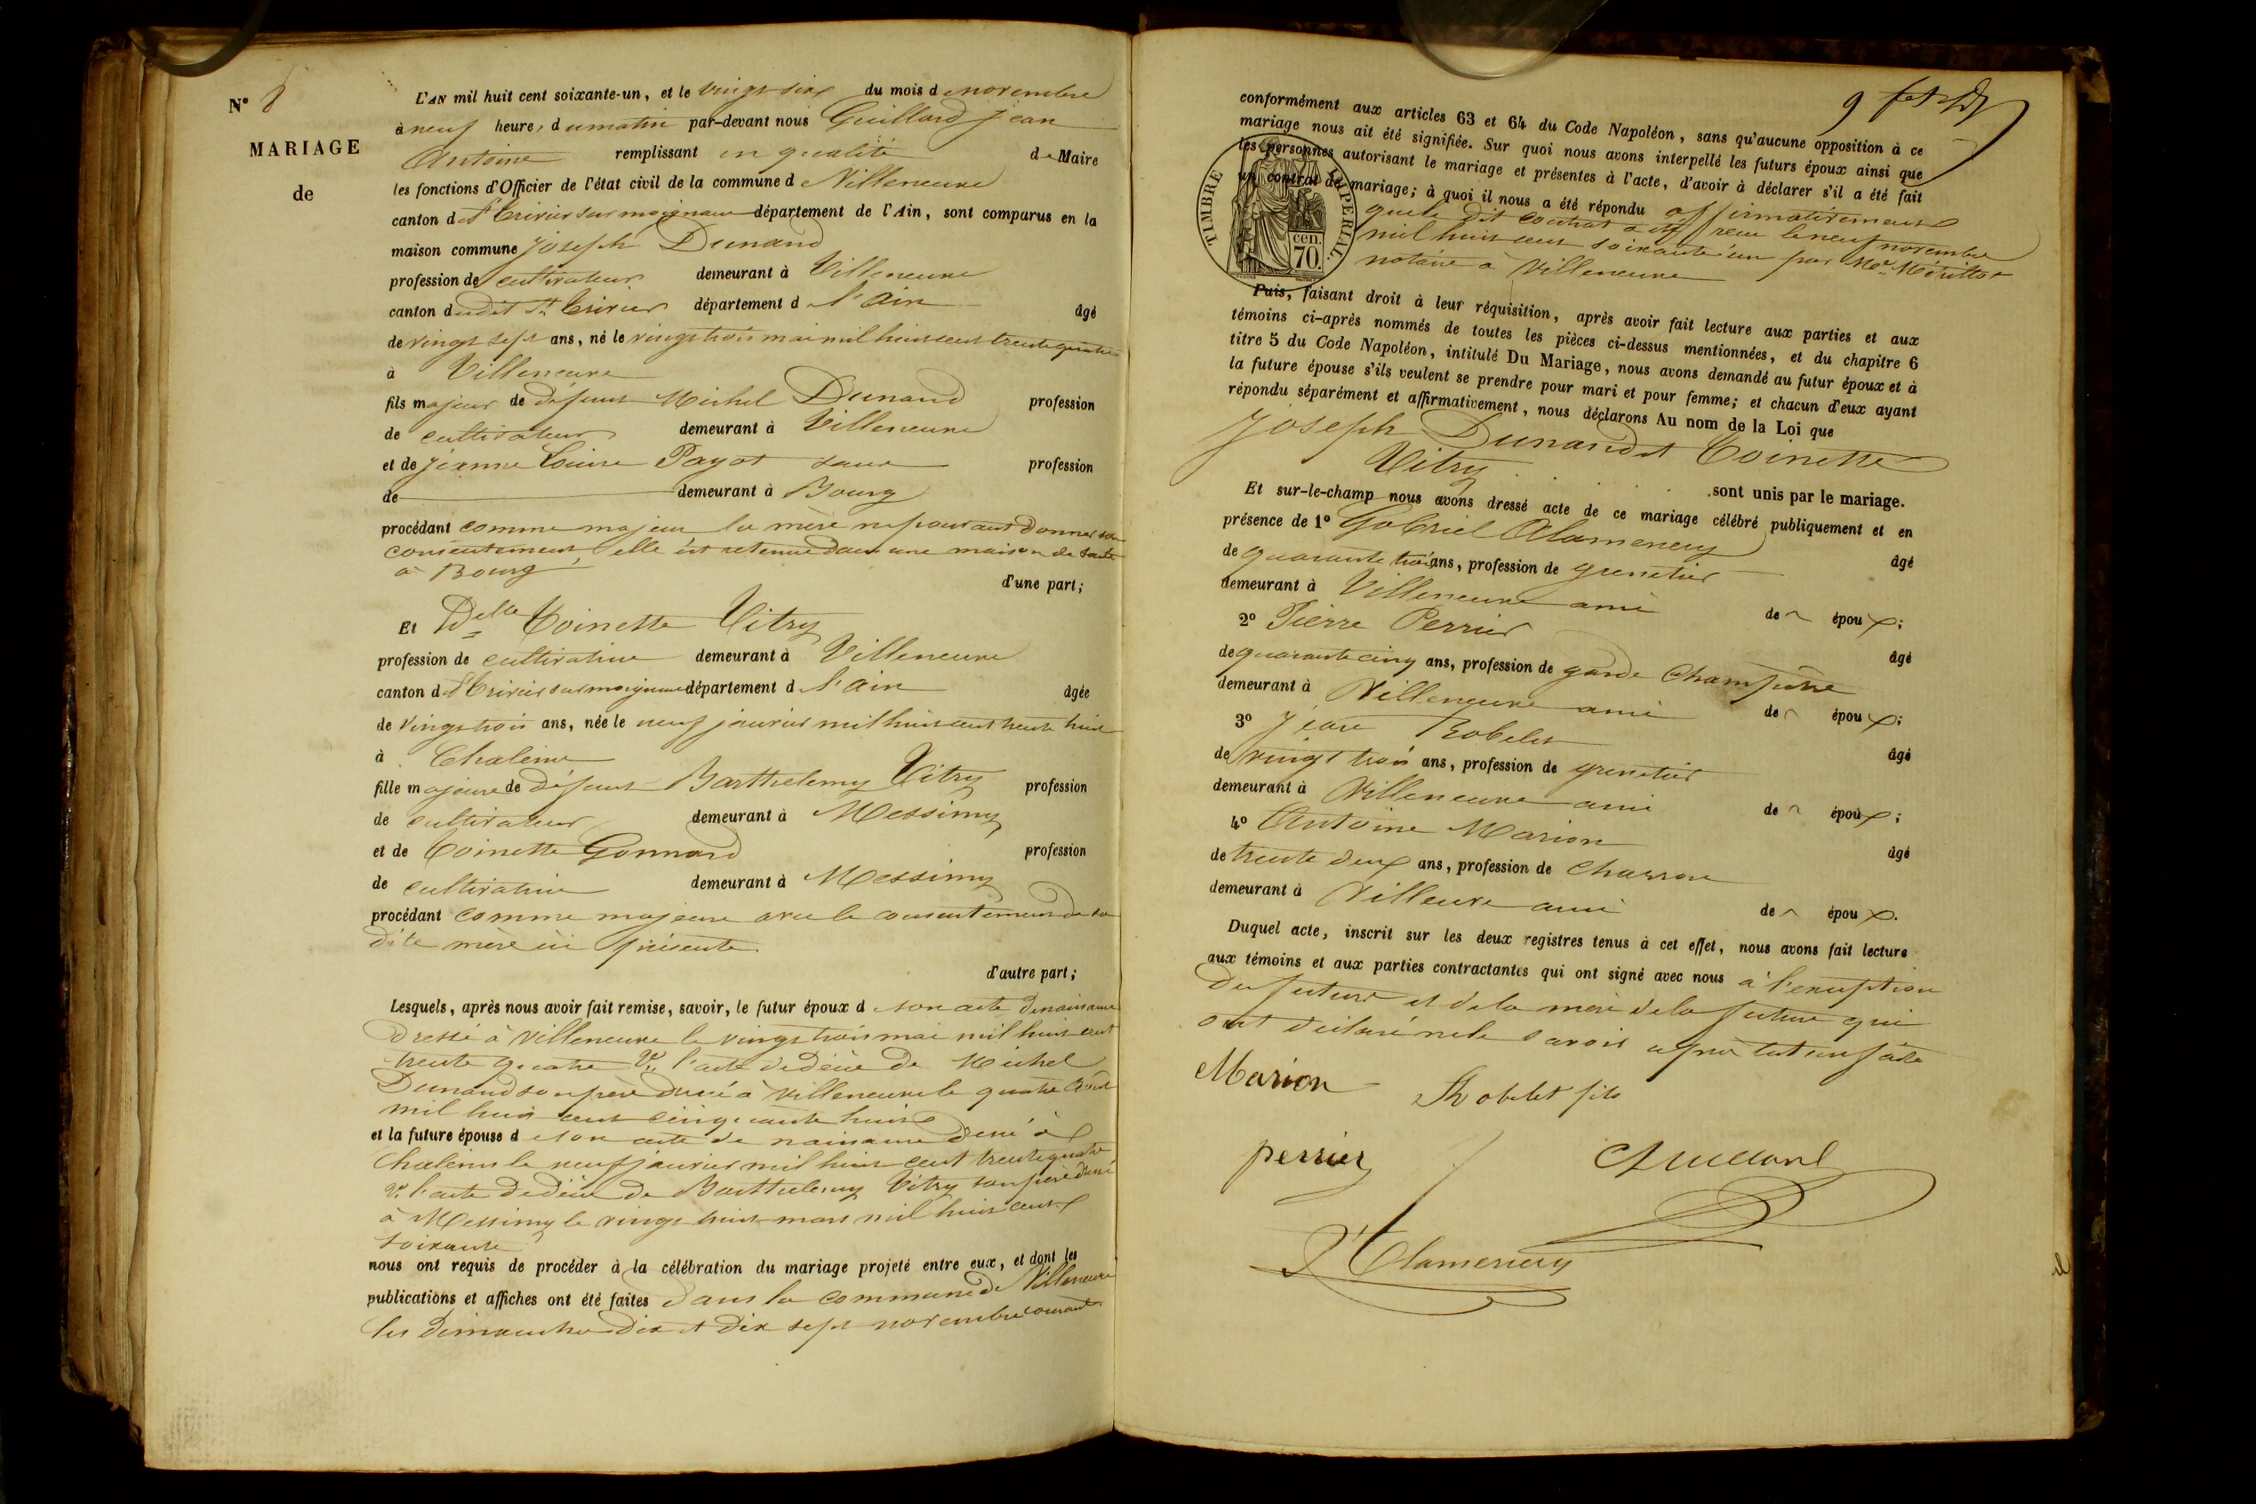 N° 8
MARIAGE
de
L'AN mil huit cent soixante-un, et le vingt six du mois de novembre
à neuf heures du matin par-devant nous Guillard Jean
Antoine remplissant en qualité de Maire
les fonctions d'Officier de l'état civil de la commune de Villeneuve
canton de St Trivier sur moignans département de l'Ain, sont comparus en la
maison commune Joseph Dunand
profession de cultivateur demeurant à Villeneuve
canton dudit St Trivier département de l'Ain âgé
de vingt sept ans, né le vingt trois mai mil huit cent trente quatre
à Villeneuve
fils majeur de défunt Michel Dunand profession
de cultivateur demeurant à Villeneuve
et de Jeanne Louise Payot sans profession
de demeurant à Bourg
procédant comme majeur la mère ne pouvant donner son
consentement elle est retenue dans une maison de santé
à Bourg
d'une part;
Et Delle Toinette Vitry
profession de cultivatrice demeurant à Villeneuve
canton de St Trivier sur moignans département de l'Ain âgée
de vingt trois ans, née le neuf janvier mil huit cent trente huit
à Chaleins
fille majeure de défunt Barthelemy Vitry profession
de cultivateur demeurant à Messimy
et de Toinette Gonnard profession
de cultivatrice demeurant à Messimy
procédant comme majeure avec le consentement de sa
dite mère ici présente
d'autre part;
Lesquels, après nous avoir fait remise, savoir, le futur époux de son acte de naissance
dressé à Villeneuve le vingt trois mai mil huit cent
trente quatre l'acte de décès de Michel
Dunand son père dressé à Villeneuve le quatre Août
mil huit cent cinquante huit
et la future épouse de son acte de naissance dressé à
Chaleins le neuf janvier mil huit cent trente quatre
l'acte de décès de Barthelemy Vitry son père dressé
à Messimy le vingt huit mars mil huit cent
soixante
nous ont requis de procéder à la célébration du mariage projeté entre eux, et dont les
publications et affiches ont été faites dans la commune de Villeneuve
les dimanches dix et dix sept novembre courant
conformément aux articles 63 et 64 du Code Napoléon, sans qu'aucune opposition à ce
mariage nous ait été signifiée. Sur quoi nous avons interpellé les futurs époux ainsi que
les personnes autorisant le mariage et présentes à l'acte, d'avoir à déclarer s'il a été fait
un contrat de mariage; à quoi il nous a été répondu affirmativement
TIMBRE IMPERIAL.
cen.
70.
que le dit contrat a été reçu le neuf novembre
mil huit cent soixante un par Me
notaire à Villeneuve
Puis, faisant droit à leur réquisition, après avoir fait lecture aux parties et aux
témoins ci-après nommés de toutes les pièces ci-dessus mentionnées, et du chapitre 6
titre 5 du Code Napoléon, intitulé Du Mariage, nous avons demandé au futur époux et à
la future épouse s'ils veulent se prendre pour mari et pour femme; et chacun d'eux ayant
répondu séparément et affirmativement, nous déclarons Au nom de la Loi que
Joseph Dunand et Toinette
Vitry
sont unis par le mariage.
Et sur-le-champ nous avons dressé acte de ce mariage célébré publiquement et en
présence de 1° Gabriel Alamercery
âgé
de quarante trois ans, profession de grenetier
demeurant à Villeneuve ami de époux;
2° Pierre Perrier
âgé
de quarante cinq ans, profession de garde Champêtre
demeurant à Villeneuve ami de époux;
3° Jean Robelet
âgé
de vingt trois ans, profession de grenetier
demeurant à Villeneuve ami de époux;
4° Antoine Marion
âgé
de trente deux ans, profession de charron
demeurant à Villeuve ami de époux.
Duquel acte, inscrit sur les deux registres tenus à cet effet, nous avons fait lecture
aux témoins et aux parties contractantes qui ont signé avec nous à l'exception
du futur et de la mère de la future qui
ont déclaré ne le savoir après lecture faite
Marion
Robelet fils
perrier
Guillard
Alamercery